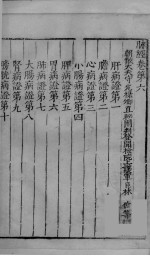 脉經卷第六
朝散大夫守光祿卿直秘閣判登聞檢院上護軍臣林億等類次
肝病證第一
膽病證第二
心病證第三
小腸病證第四
脾病證第五
胃病證第六
肺病證第七
大腸病證第八
腎病證第九
膀胱病證第十